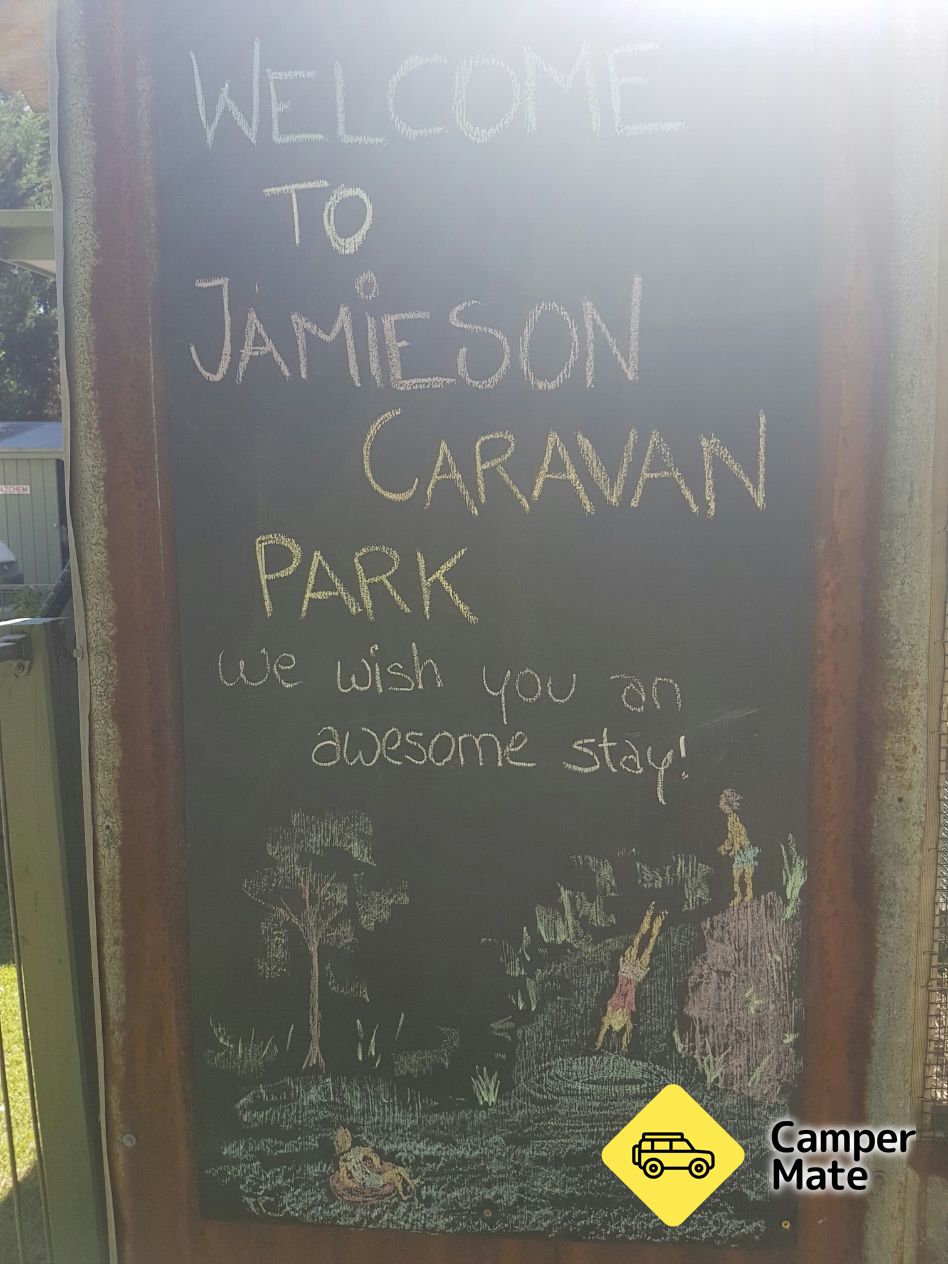 WELCOME
TO
JAMIESON
CARAVAN
PARK
we wish you an
awesome stay!
Camper
Mate